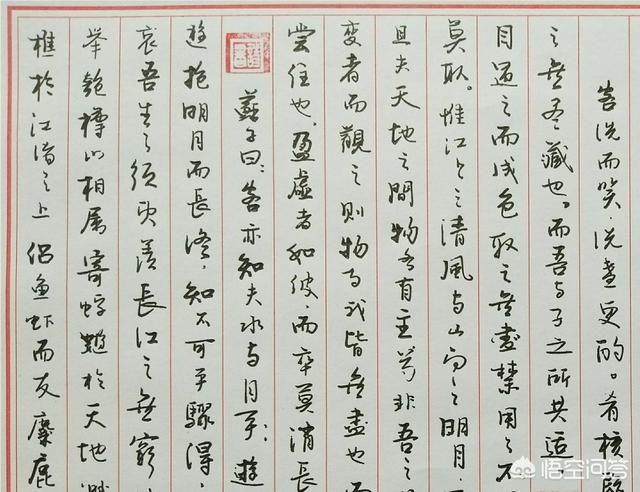 樵於江渚之上侶鱼虾而友麋鹿
举匏樽以相属寄蜉蝣於天地渺
哀吾生之须臾羨長江之無窮
遊抱明月而長终，知不可乎驟得，
蘇子曰：客亦知夫水与月乎；逝
尝往也，盈虚者如彼，而卒莫消長
变者而觀之则物与我皆無盡也而
且夫天地之間物各有主苟非吾之
莫取。惟江上之清風与山间之明月
目遇之而成色取之無盡禁用之不
之無尽藏也。而吾与子之所共適
客洗而笑，洗盏更酌。肴核既
悟空问答